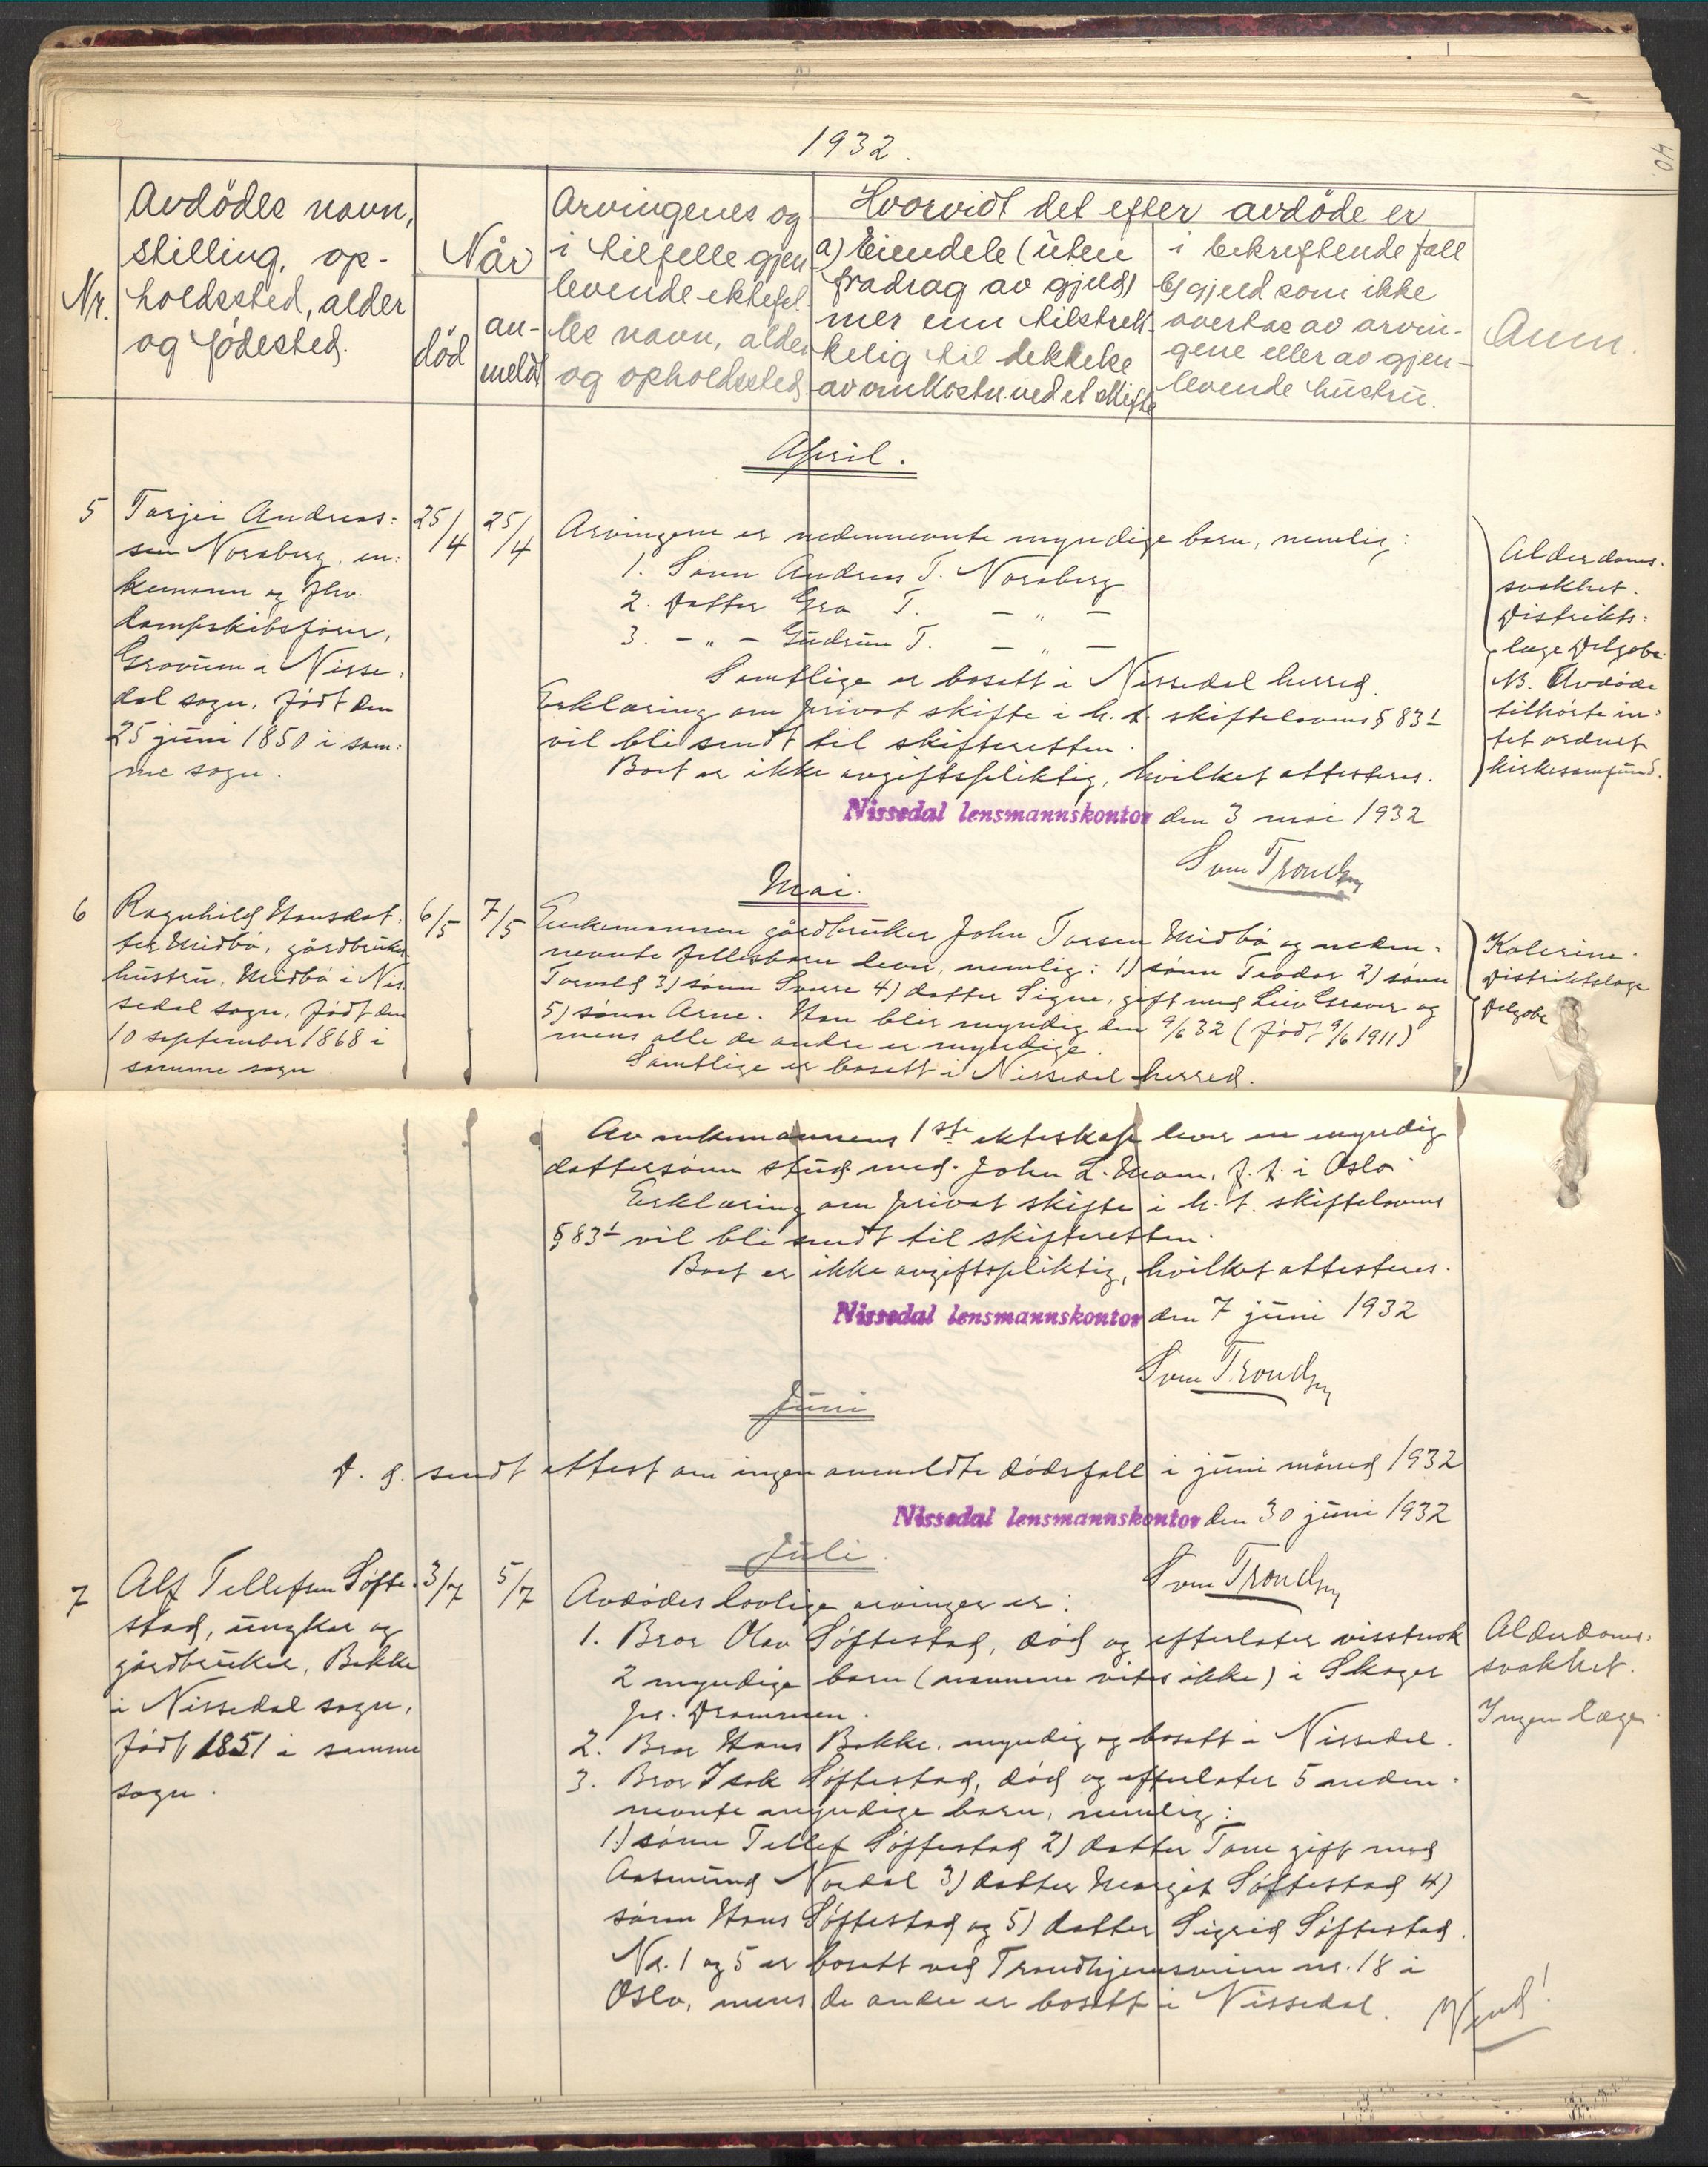 40
1932.
Nr.
Avdödes navn,
stilling, op-
holdssted, alder
og födested.
Når
död
an-
meldt
Arvingenes og
i tilfelle gjen
levende ektefel
les navn, alder
og opholdssted
Hvorvidt det efter avdöde er
a) Eiendele (uten
fradrag av gjeld)
mer enn tilstrek-
kelig til dekkelse
av omkostn. ved et skifte
i bekreftende fall
b) gjeld som ikke
overtas av arvin-
gene eller av gjen-
levende hustru.
Anm.
April.
5
Torjei Andreas=
sen Norsberg, en=
kemann og fhv.
dampskibsförer,
Gravum i Nisse=
dal sogn, född den
25 juni 1850 i sam=
me sogn.
25/4
25/4
Arvingene er nedennevnte myndige barn, nemlig:
1. Sönn Andreas T. Norsberg
2. Datter Gro T. - " -
3. - " - Gudrun T. - " -
Samtlige er bosatt i Nissedal herred.
Erklæring om privat skifte i h. t. skiftelovens § 83 1
vil bli sendt til skifteretten.
Boet er ikke avgiftspliktig, hvilket attesteres.
Nissedal lensmannskontor den 3 mai 1932
Sven Trondsen
Alderdoms=
svakhet.
Distrikts=
læge Delgobe.
NB. Avdöde
tilhörte in=
tet ordnet
kirkesamfund.
Mai.
6
Ragnhild Hansdat=
ter Midbö, gårdbruker
hustru, Midbö i Nis
sedal sogn, född den
10 september 1868 i
samme sogn.
6/5
7/5
Enkemannen gårdbruker John Torsen Midbö og neden=
nevnte fellesbarn lever, nemlig: 1) sönn Teodor 2) sönn
Torvald 3) sönn Sverre 4) datter Signe, gift med Leiv Graver og
5) sönn Arne. Han blir myndig den 9/6 32 (född 9/6 1911)
mens alle de andre er myndige.
Samtlige er bosatt i Nissedal herred.
Kolerine.
Distriktslæge
Delgobe
Av enkemannens 1ste ekteskap lever en myndig
dattersönn stud. med. John L. Moam, f. t. i Oslo
Erklæring om privat skifte i h. t. skiftelovens
§ 83 1 vil bli sendt til skifteretten.
Boet er ikke avgiftspliktig, hvilket attesteres.
Nissedal lensmannskontor den 7 juni 1932
Sven Trondsen
Juni
D. d. sendt attest om ingen anmeldte dödsfall i juni måned 1932
Nissedal lensmannskontor den 30 juni 1932
Sven Trondsen
Juli.
7
Alf Tellefsen Söfte=
stad, ungkar og
gårdbruker, Bakke
i Nissedal sogn,
född 1851 i samme
sogn.
3/7
5/7
Avdödes lovlige arvinger er:
1. Bror Olav Söftestad, död og efterlater visstnok
2 myndige barn (navnene vites ikke) i Skoger
pr. Drammen.
2. Bror Hans Bakke, myndig og bosatt i Nissedal.
3. Bror Isak Söftestad, död og efterlater 5 neden=
nevnte myndige barn, nemlig:
1.) sönn Tellef Söftestad 2) datter Tone gift med
Aasmund Nordal 3) datter Margit Söftestad 4)
sönn Hans Söftestad og 5) datter Sigrid Söftestad.
Nr. 1 og 5 er bosatt ved Trondhjemsveien nr. 18 i
Oslo, mens de andre er bosatt i Nissedal.
Vend!
Alderdoms=
svakhet.
Ingen læge.